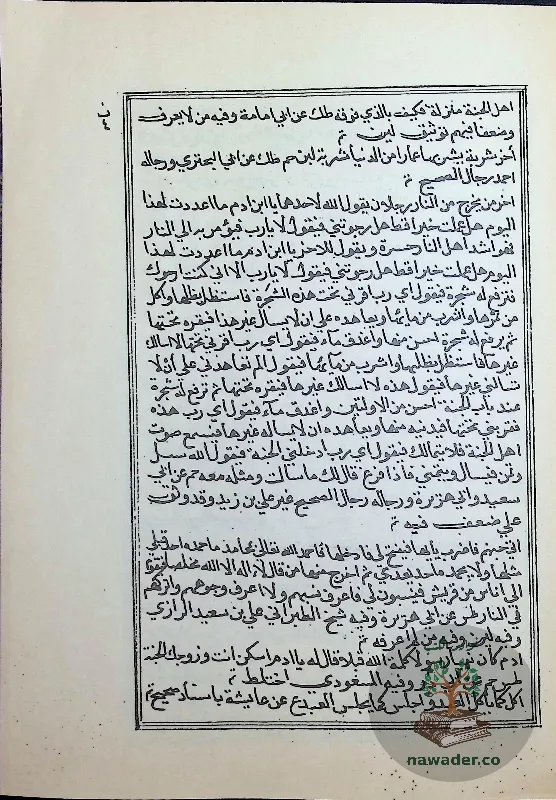 اهل الجنة منزلة فكيف بالذي فوقه طك عن ابي امامة وفيه من لا يعرف
وضعفا فيهم توثيق لين تم
آخر شربة يشربها عمار من الدنيا شربة لبن حم طك عن ابي البختري ورجاله
احمد رجال الصحيح تم
اخر من يخرج من النار رجلان يقول الله لاحدهما يا ابن ادم ما اعددت لهذا
اليوم هل عملت خيرا قط هل رجوتني فيقول لا يارب فيؤمر به الي النار
فهو اشد اهل النار حسرة ويقول للاخر يا ابن ادم ما اعددت لهذا
اليوم هل عملت خيرا قط هل رجوتني فيقول لا يارب الا اني كنت ارجوك
فترفع له شجرة فيقول اي رب اقرني تحت هذه الشجرة فاستظل بظلها واكل
من ثمرها واشرب من مائها ويعاهده علي ان لا يسال غيرها فيقره تحتها
ثم يرفع له شجرة احسن منها واغدق ماء فيقول اي رب اقرني تحتها لا اسالك
غيرها فاستظل بظلها واشرب من مائها فيقول الم تعاهدني علي ان لا
تسالني غيرها فيقول هذه لا اسالك غيرها فيقره تحتها ثم ترفع له شجرة
عند باب الجنة احسن من الاولتين واغدق ماء فيقول اي رب هذه
فقربني تحتها فيدنيه منها ويعاهده ان لا يساله غيرها فيسمع صوت
اهل الجنة فلا يتمالك فيقول اي رب ادخلني الجنة فيقول الله سل
وتمن فيسال ويتمني فاذا فرغ قال لك ما سالت ومثله معه حم عن ابي
سعيد وابي هريرة ورجاله رجال الصحيح غير علي بن زيد وقد وثق
علي ضعف فيه تم
اتي جهنم فاضرب بابها فيفتح لي فادخلها فاحمد الله تعالي بمحامد ما حمده احد قبلي
مثلها ولا يحمده احد بعدي ثم اخرج منها من قال لا اله الا الله مخلصا فيقوم
الي اناس من قريش فينسبون لي فاعرف نسبهم ولا اعرف وجوههم واتركهم
في النار طس عن ابي هريرة وفيه شيخ الطبراني علي بن سعيد الرازي
وفيه لين وفيه من لم اعرفه تم
ادم كان الله قبلا قال له يا ادم اسكن انت وزوجك الجنة
وفيه المسعودي اختلط تم
اكل كما ياكل العبد واجلس كما يجلس العبد ع عن عايشة باسناد صحيح تم
nawader.co